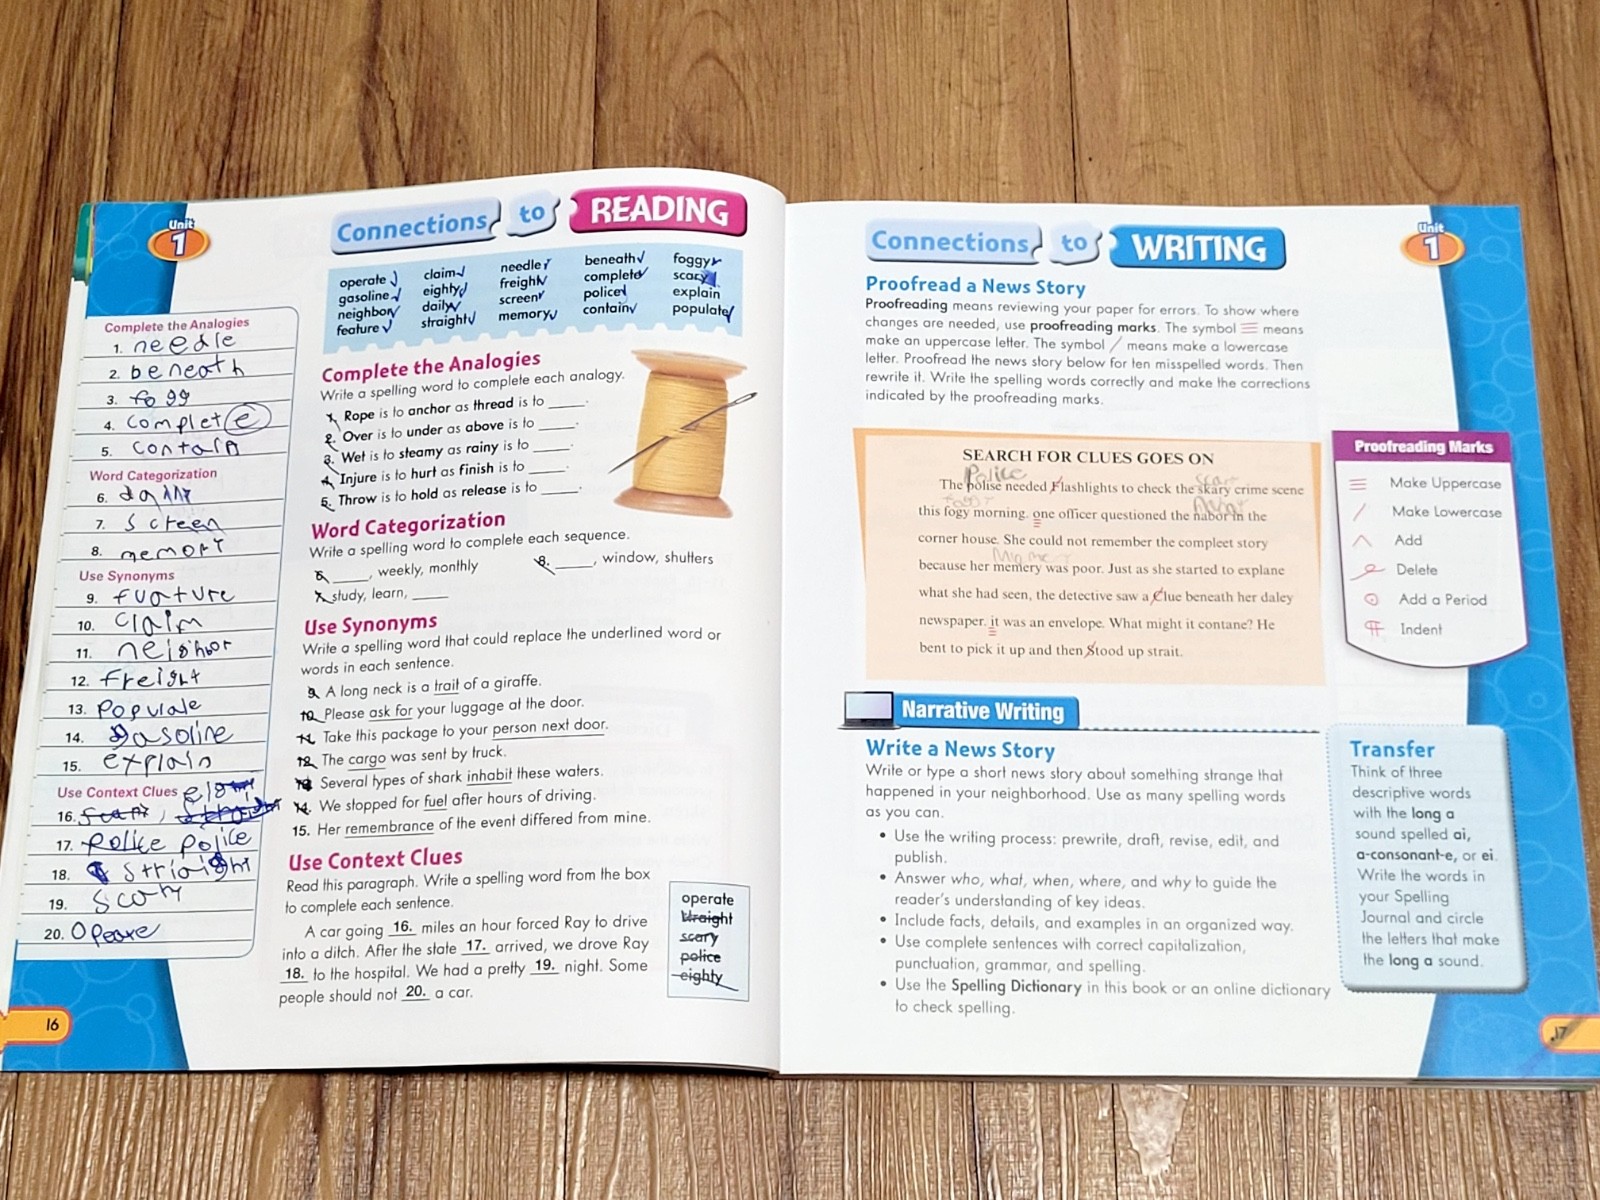 Unit
1
Connections to READING
operate claim needle beneath foggy
gasoline eighty freight complete scary
neighbor daily screen police explain
feature straight memory contain populate
Complete the Analogies
1. needle
2. beneath
3. fogg
4. complete
5. contain
Word Categorization
6.
7. screen
8. memory
Use Synonyms
9. fuature
10. claim
11. neighbor
12. freight
13. populate
14. gasoline
15. explain
Use Context Clues
16.
17. police police
18.
19. scary
20.
Complete the Analogies
Write a spelling word to complete each analogy.
1. Rope is to anchor as thread is to _____.
2. Over is to under as above is to _____.
3. Wet is to steamy as rainy is to _____.
4. Injure is to hurt as finish is to _____.
5. Throw is to hold as release is to _____.
Word Categorization
Write a spelling word to complete each sequence.
6. _____, weekly, monthly 8. _____, window, shutters
7. study, learn, _____
Use Synonyms
Write a spelling word that could replace the underlined word or
words in each sentence.
9. A long neck is a trait of a giraffe.
10. Please ask for your luggage at the door.
11. Take this package to your person next door.
12. The cargo was sent by truck.
13. Several types of shark inhabit these waters.
14. We stopped for fuel after hours of driving.
15. Her remembrance of the event differed from mine.
Use Context Clues
Read this paragraph. Write a spelling word from the box
to complete each sentence.
A car going 16. miles an hour forced Ray to drive
into a ditch. After the state 17. arrived, we drove Ray
18. to the hospital. We had a pretty 19. night. Some
people should not 20. a car.
operate
straight
scary
police
eighty
16
Connections to WRITING
Unit
1
Proofread a News Story
Proofreading means reviewing your paper for errors. To show where
changes are needed, use proofreading marks. The symbol ≡ means
make an uppercase letter. The symbol / means make a lowercase
letter. Proofread the news story below for ten misspelled words. Then
rewrite it. Write the spelling words correctly and make the corrections
indicated by the proofreading marks.
SEARCH FOR CLUES GOES ON
Police
The polise needed Flashlights to check the skary crime scene
this fogy morning. one officer questioned the nabor in the
corner house. She could not remember the compleet story
because her memery was poor. Just as she started to explane
what she had seen, the detective saw a Clue beneath her daley
newspaper. it was an envelope. What might it contane? He
bent to pick it up and then Stood up strait.
Proofreading Marks
Make Uppercase
Make Lowercase
Add
Delete
Add a Period
Indent
Narrative Writing
Write a News Story
Write or type a short news story about something strange that
happened in your neighborhood. Use as many spelling words
as you can.
• Use the writing process: prewrite, draft, revise, edit, and
publish.
• Answer who, what, when, where, and why to guide the
reader's understanding of key ideas.
• Include facts, details, and examples in an organized way.
• Use complete sentences with correct capitalization,
punctuation, grammar, and spelling.
• Use the Spelling Dictionary in this book or an online dictionary
to check spelling.
Transfer
Think of three
descriptive words
with the long a
sound spelled ai,
a-consonant-e, or ei.
Write the words in
your Spelling
Journal and circle
the letters that make
the long a sound.
17